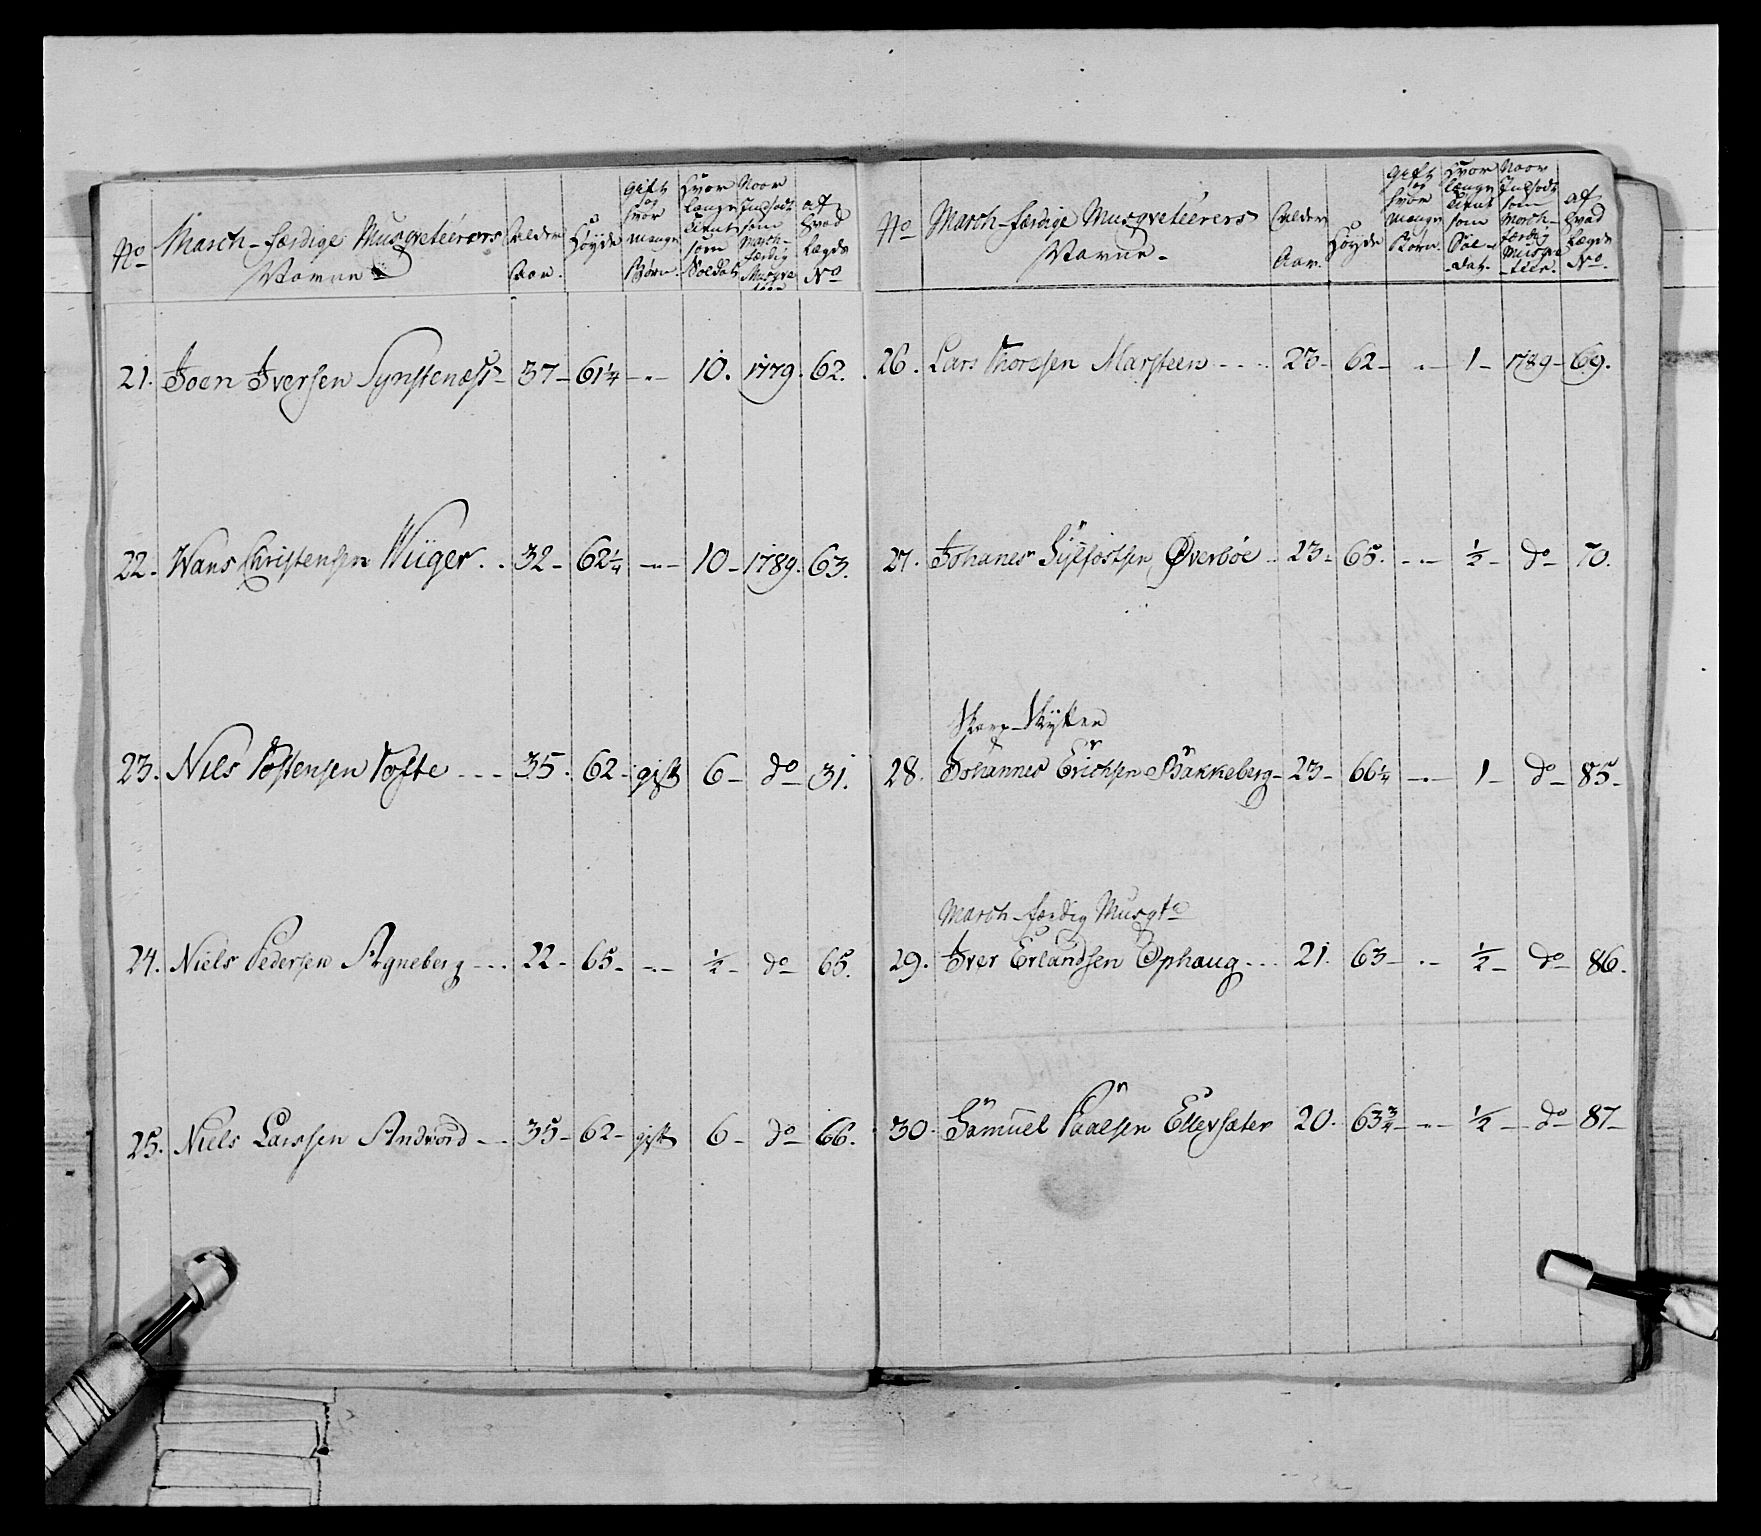 No March-færdige Musqveteérers Navne Alder Aar. Høyde gift og hvor mange Børn. Hvor længe tient som Soldat Naar Indsadt som March-færdig Musqveteer af hvad Lægds No
21. Joen Iversen Synstenæss - 37 - 61 1/4 - - 10. 1779. 62.
22. Hans Christensen Wiiger. . 32 - 62 1/4 - - 10 - 1789. 63.
23. Niels Tostensen Tofte - - - 35. 62 - gift 6 - do - 31.
24. Niels Pedersen Agneberg - - - 22 - 65 - - 1/2 - do - 65.
25. Niels Larssen Andvord - - 35 - 62 - gift 6 - do - 66.
No March-færdige Musqveteérers Navne - Alder Aar. Høyde gift og hvor mange Børn. Hvor længe tient som Soldat. Naar Indsadt som March-færdig Musqveteer. af hvad Lægds No
26. Lars Thoresen Marsteen - - - 23 - 62 - - 1 - 1789 - 69.
27. Johanes Sylfestsen Øverbøe - 23 - 65. - 1/2 - do - 70.
Skarp-Skytter
28. Johannes Erichsen Bakkeberg - 23 - 66 1/4 - - 1 - do - 85 -
March-færdig Musqte
29. Iver Erlandsen Ophaug - - - 21. 63 - - 1/2 - do - 86.
30. Samuel Paalsen Ellevsæter 20. 63 3/4 - - 1/2 - do - 87 -